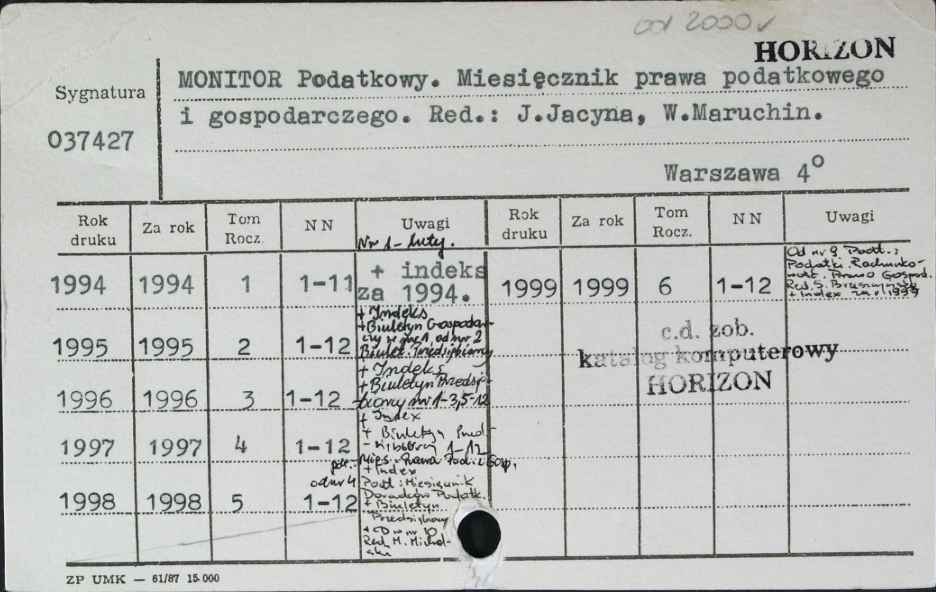 od 2000
HORIZON
Sygnatura
037427
MONITOR Podatkowy. Miesięcznik prawa podatkowego
i gospodarczego. Red.: J.Jacyna, W.Maruchin.
Warszawa 4°
Rok druku Za rok Tom Rocz. N N Uwagi Rok druku Za rok Tom Rocz. N N Uwagi
Nr 1 - luty.
1994 1994 1 1-11 + indeks za 1994. 1999 1999 6 1-12 Od nr 9 Podt.:
Podatki. Rachunko-
Prawo Gospod.
Red. S.
+ Index za r. 1999
1995 1995 2 1-12 + Indeks
+ Biuletyn Gospodar-
czy nr 1, od nr 2
Biulet. Przedsiębiorcy
c.d. zob.
katalog komputerowy
HORIZON
1996 1996 3 1-12 + Indeks
+ Biuletyn Przedsię-
biorcy nr 1-3, 5-12
1997 1997 4 1-12 + Index
+ Biuletyn Przed-
siębiorcy 1-12
pt.: Mies. Prawa Pod. i Gosp.
+ Index
1998 1998 5 1-12 od nr 4 Podt.: Miesięcznik
Doradców Podatk.
+ Biuletyn
Przedsiębiorcy
+ CD w nr 10
Red. M. Michal-
ski
ZP UMK — 61/87 15 000